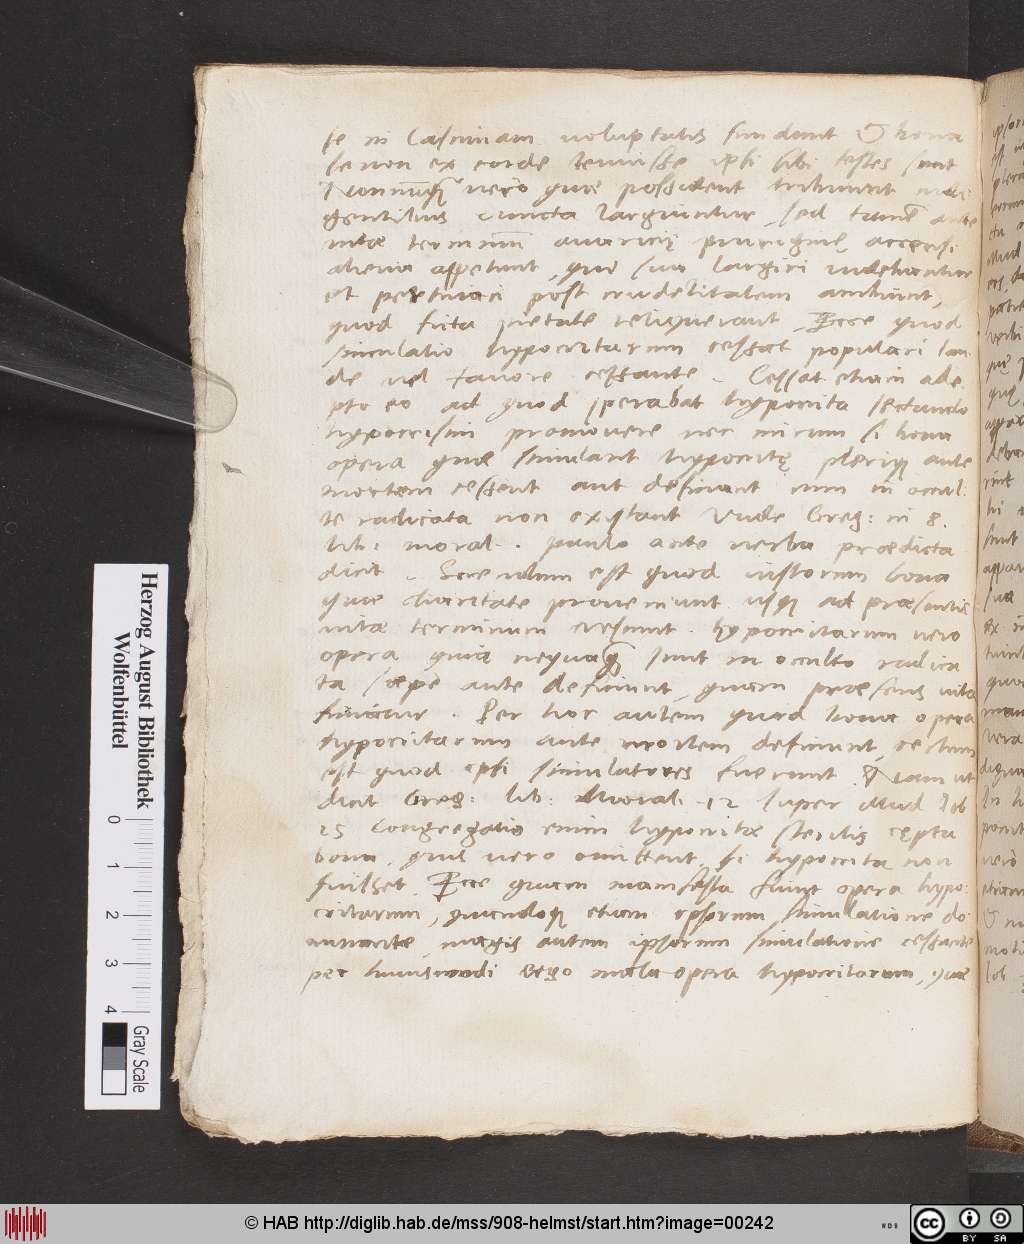 se in lasciviam voluptatis fundunt & bona
se non ex corde tenuisse ipsi sibi testes sunt
Nonnunq̃ vero quæ possident tribuunt
gentibus cuncta largiuntur, sed tamē ante
vitæ terminū avaricię prurigine accensi
aliena appetunt, qui sua largiri videbantur
et pertinaci post crudelitatem ambiunt,
quod ficta pietate reliquerant. Ecce quod
simulatio hypocritarum cessat populari lau
de vel favore cessante. Cessat etiam ade
pto eo ad quod sperabat hypocrita secundo
hypocrisim promovere nec mirum si bona
opera quæ simulant hypocritę pleriq̃ ante
mortem cessent aut deficiant cum in occul:
to radicata non existant Unde Greg: in 8.
lib: moral. paulo ante verba prædicta
dicit. Sciendum est quod iustorum bona
quæ charitate proveniunt usq̃ ad præsentis
vitæ terminum crescunt. hypocritarum vero
opera quia nequaq̃ sunt in occulto radica
ta sæpe ante deficiunt, quam præsens vita
finiatur. Per hoc autem quod bona opera
hypocritarum ante mortem deficiunt, certum
est quod ipsi simulatores fuerunt & Nam ut
dicit Greg: lib: Moral. 12 super illud Iob
15 Congregatio enim hypocritæ sterilis cępta
bona, quæ vero omittent, si hypocrita non
fuisset. Ecce quam manifesta sunt opera hypo:
critarum, quandoq̃ etiam ipsorum simulatione do
minante, magis autem ipsorum simulatione cessante
per huiusmodi ergo mala opera hypocritarum, quæ
Herzog August Bibliothek
Wolfenbüttel
0 1 2 3 4
Gray Scale
© HAB http://diglib.hab.de/mss/908-helmst/start.htm?image=00242
WDB
cc BY SA